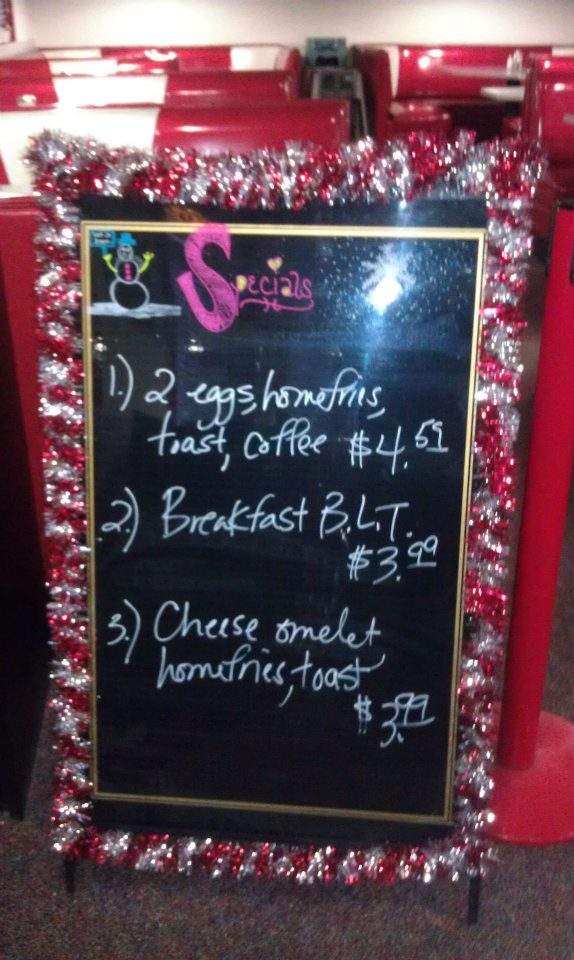 Specials
1.) 2 eggs, homefries,
toast, coffee $4.59
2.) Breakfast B.L.T.
$3.99
3.) Cheese omelet,
homefries, toast
$3.99